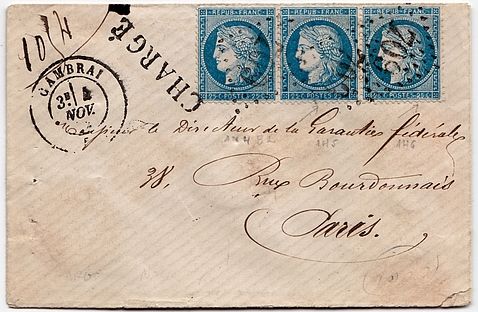 10 H
CHARGÉ
REPUB·FRANC
REPUB·FRANC
REPUB·FRANC
25 POSTES 25
25 POSTES 25
25 POSTES 25
CAMBRAI
3E
4
NOV.
Directeur de la Garantie fédérale
1H5
1H6
38, Rue Bourdonnais
Paris.